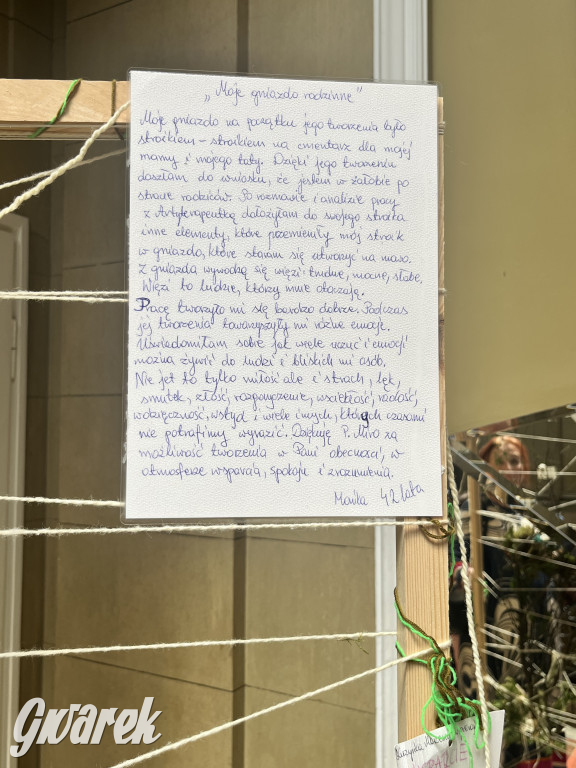 „Moje gniazdo rodzinne"
Moje gniazdo na początku jego tworzenia było
stroikiem – stroikiem na cmentarz dla mojej
mamy i mojego taty. Dzięki jego tworzeniu
doszłam do wniosku, że jestem w żałobie po
stracie rodziców. Po rozmowie i analizie pracy
z Arteterapeutką dołożyłam do swojego stroika
inne elementy, które przemieniły mój stroik
w gniazdo, które staram się utworzyć na nowo.
Z gniazda wywodzą się więzi: trudne, mocne, słabe.
Więzi to ludzie, którzy mnie otaczają.
Pracę tworzyło mi się bardzo dobrze. Podczas
jej tworzenia towarzyszyły mi różne emocje.
Uświadomiłam sobie jak wiele uczuć i emocji
można żywić do ludzi i bliskich mi osób.
Nie jet to tylko miłość ale i strach, lęk,
smutek, złość, rozgoryczenie, wściekłość, radość,
wdzięczność, wstyd i wiele innych, których czasami
nie potrafimy wyrazić. Dziękuję P. Miro za
możliwość tworzenia w Pani obecności, w
atmosferze wsparcia, spokoju i zrozumienia.
42 lata
Gwarek